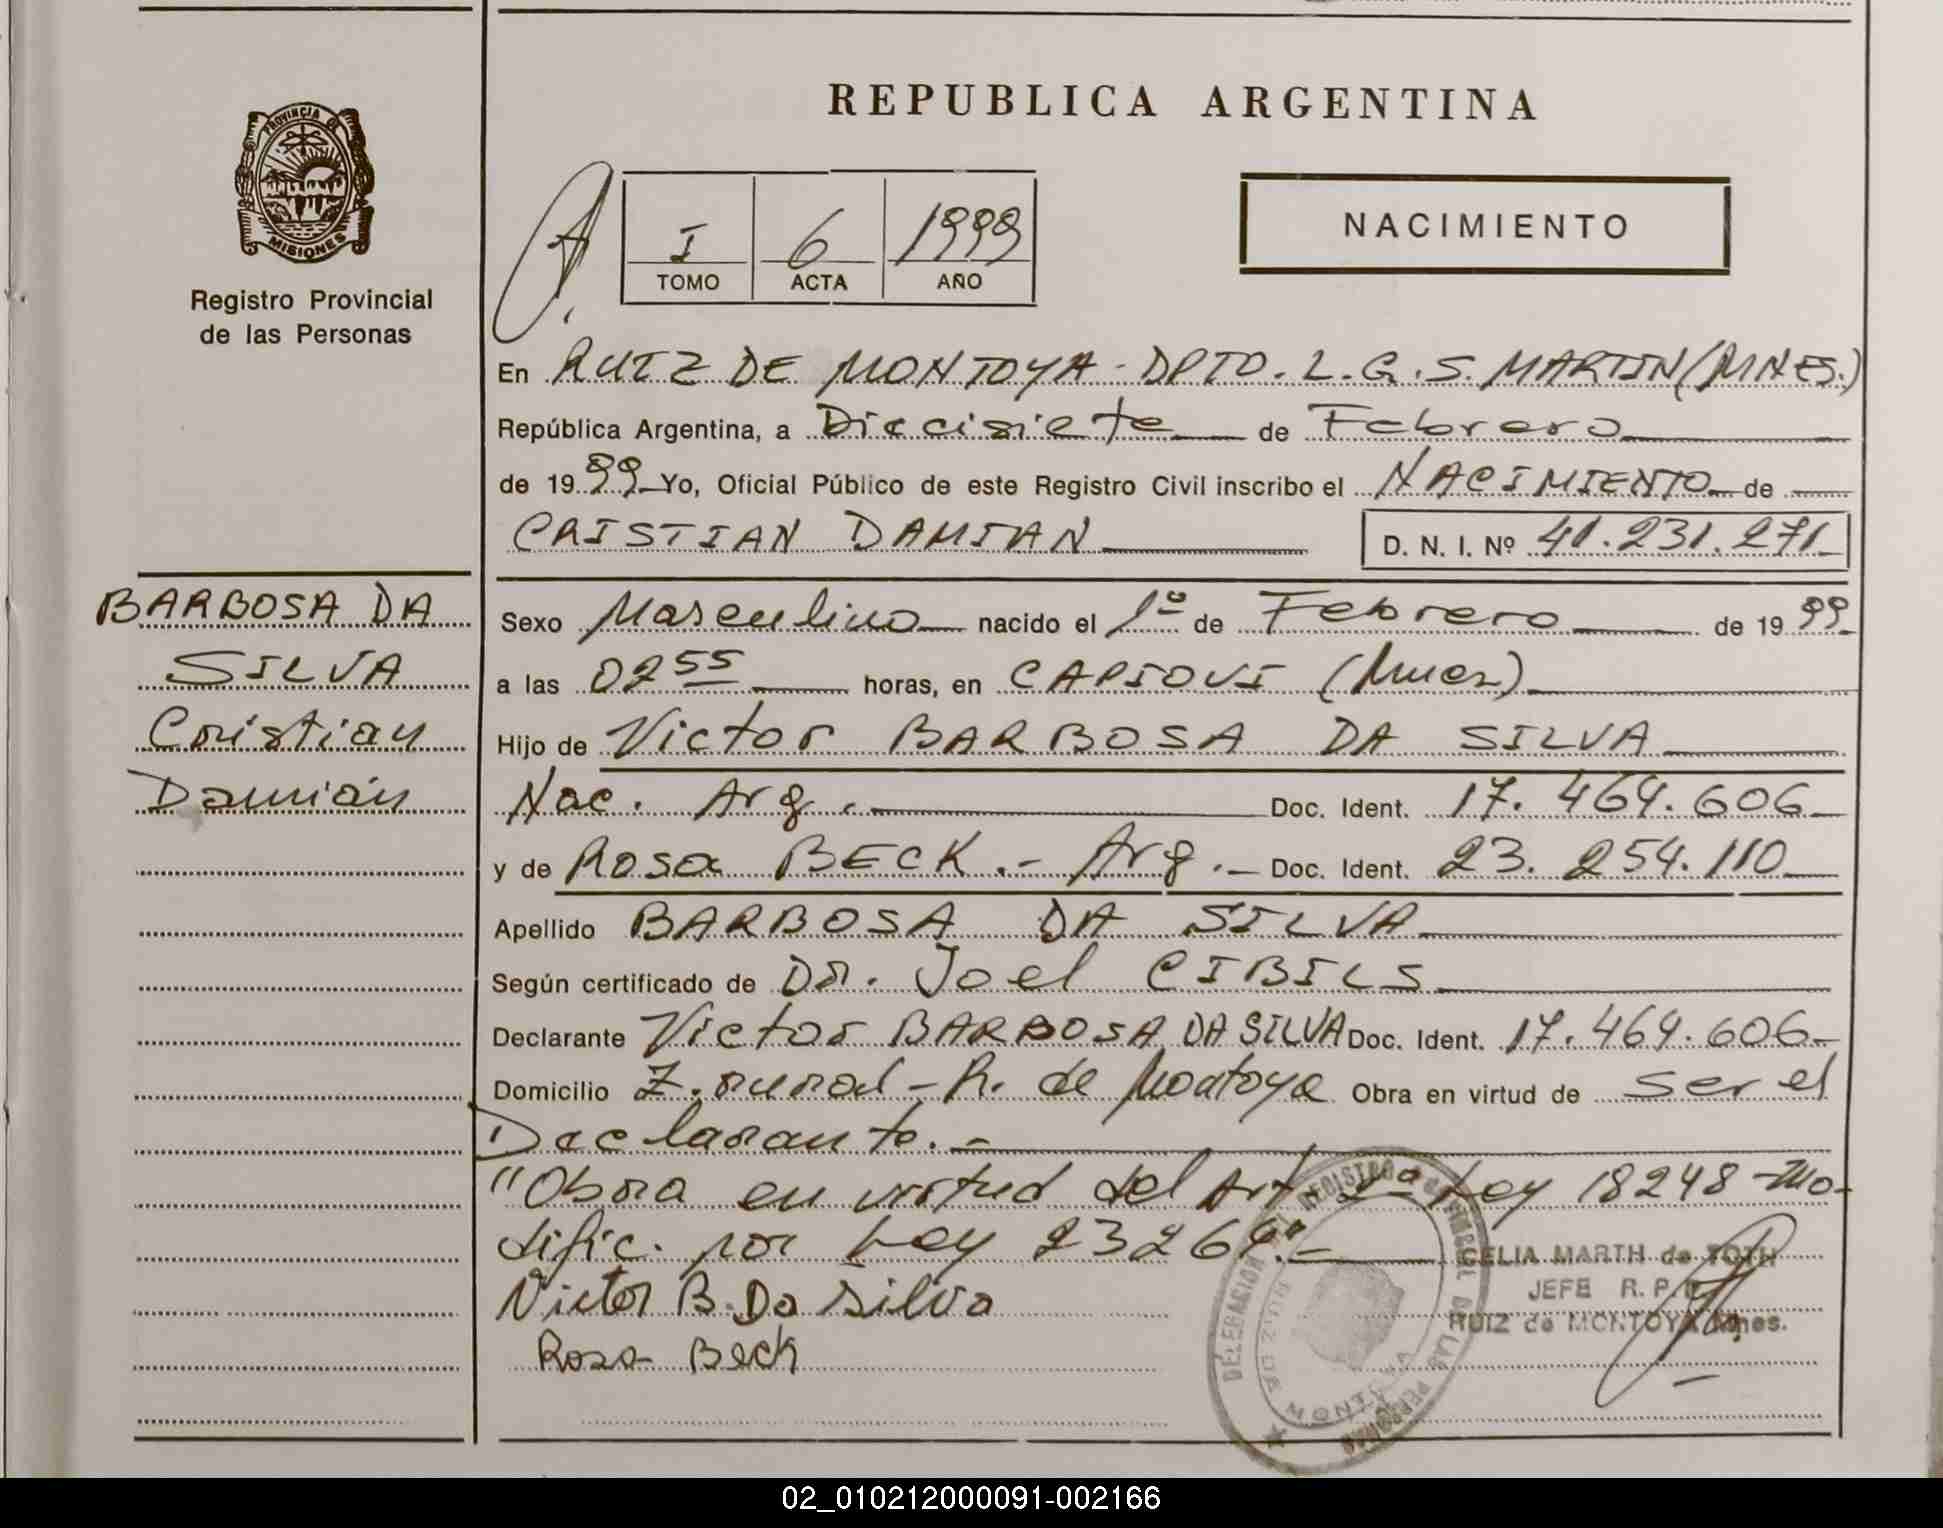 REPUBLICA ARGENTINA
PROVINCIA DE
MISIONES
Registro Provincial
de las Personas
I 6 1999
TOMO ACTA AÑO
NACIMIENTO
En RUIZ DE MONTOYA - DPTO. L.G.S. MARTIN (MNES.)
República Argentina, a Diecisiete de Febrero
de 1999 Yo, Oficial Público de este Registro Civil inscribo el NACIMIENTO de
CRISTIAN DAMIAN D. N. I. Nº 41.231.271
BARBOSA DA
SILVA
Cristian
Damián
Sexo Masculino nacido el 1º de Febrero de 1999
a las 02 55 horas, en CAPIOVI (Mnes)
Hijo de Victor BARBOSA DA SILVA
Nac. Arg. Doc. Ident. 17.464.606
y de Rosa BECK.- Arg.- Doc. Ident. 23.254.110
Apellido BARBOSA DA SILVA
Según certificado de Dr. Joel CIBILS
Declarante Victor BARBOSA DA SILVA Doc. Ident. 17.464.606
Domicilio Z. rural - R. de Montoya Obra en virtud de ser el
Declarante.-
"Obra en virtud del Art. Ley 18248 - Mo-
dific. por Ley 23264".-
Victor B. Da Silva
Rosa Beck
CELIA MARTH de TOTH
JEFE R. P. P.
RUIZ de MONTOYA Mnes.
DELEGACION DEL REGISTRO PROVINCIAL DE LAS PERSONAS
RUIZ DE MONTOYA
02_010212000091-002166